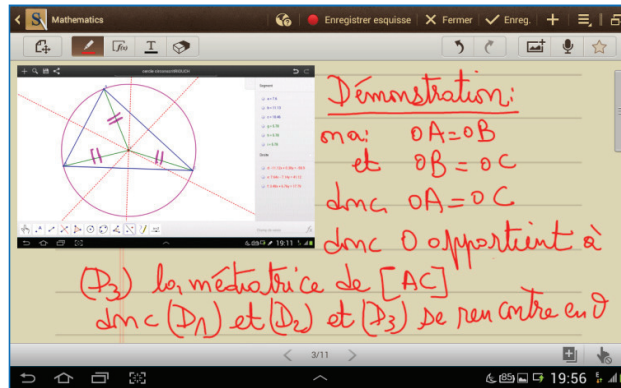 Mathematics
Enregistrer esquisse
Fermer
Enreg.
f(x)
T
19:11
Démonstration:
on a: OA=OB
et OB=OC
donc OA=OC
donc O appartient à
(D3) la médiatrice de [AC]
donc (D1) et (D2) et (D3) se rencontre en O
3/11
85
19:56